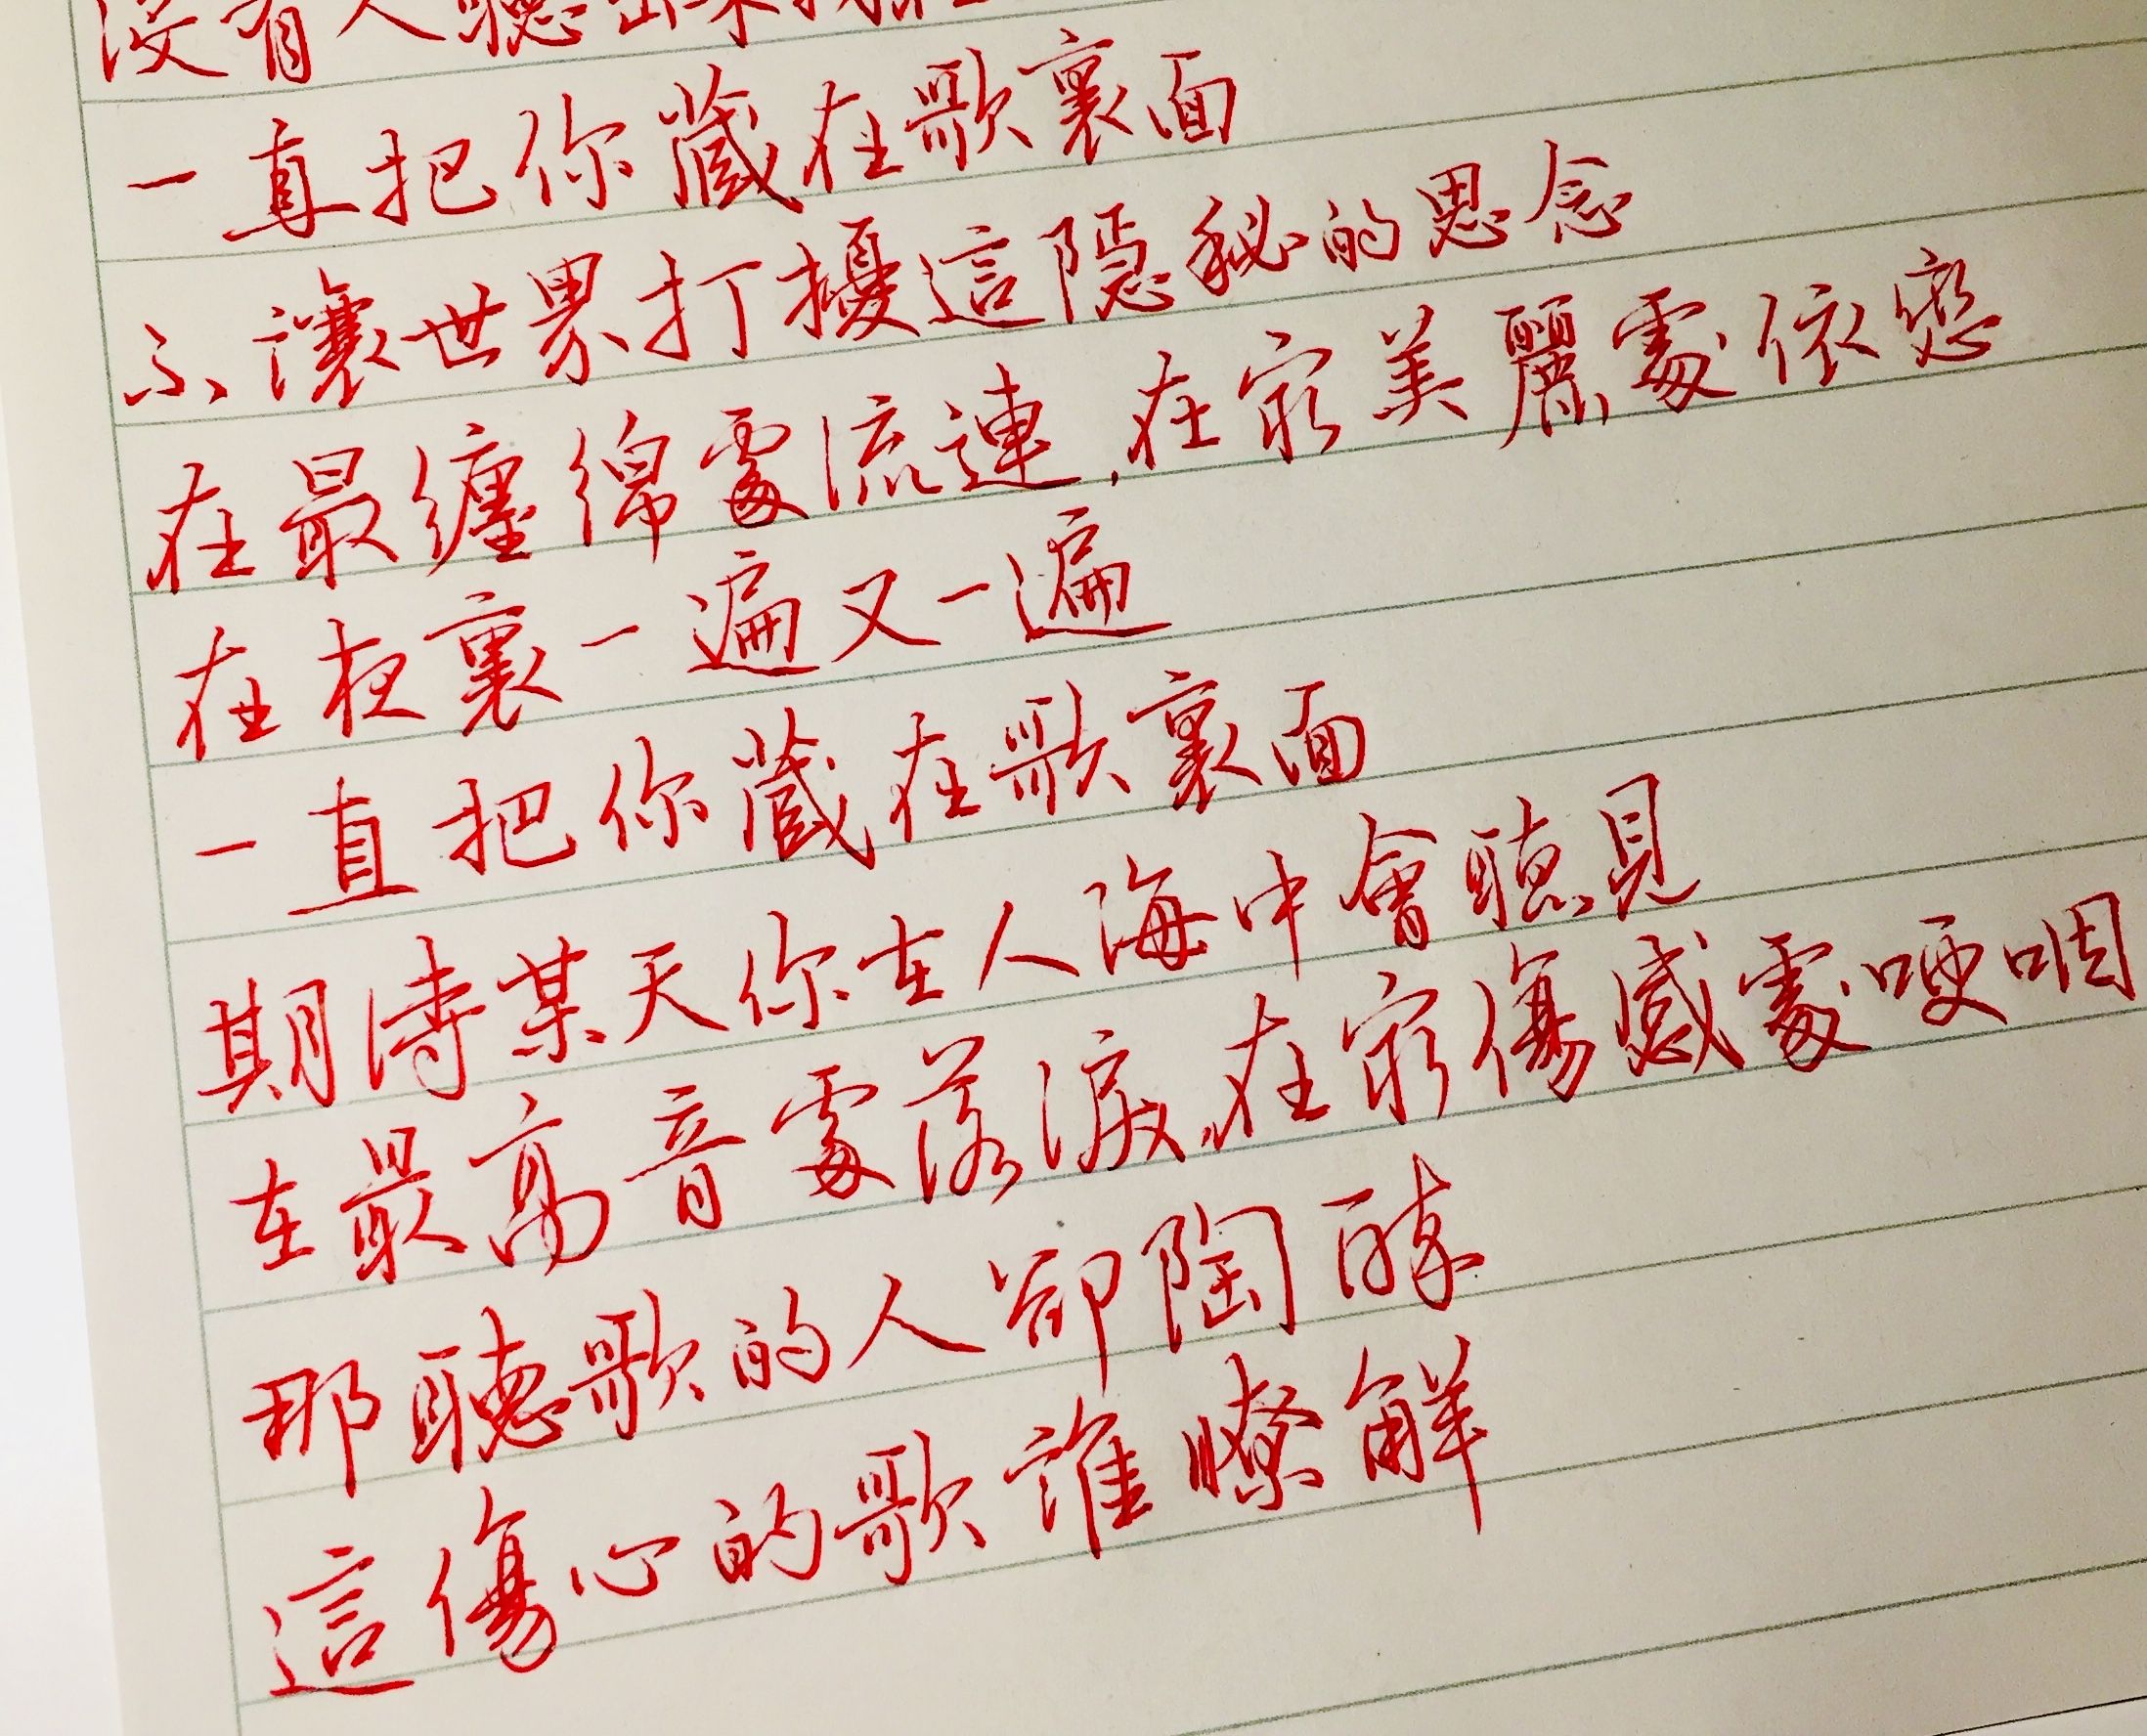 沒有人聽出來我
一直把你藏在歌裏面
不讓世界打擾這隱秘的思念
在最纏綿處流連,在最美麗處依戀
在夜裏一遍又一遍
一直把你藏在歌裏面
期待某天你在人海中會聽見
在最高音處落淚,在最傷感處哽咽
那聽歌的人卻陶醉
這傷心的歌誰瞭解